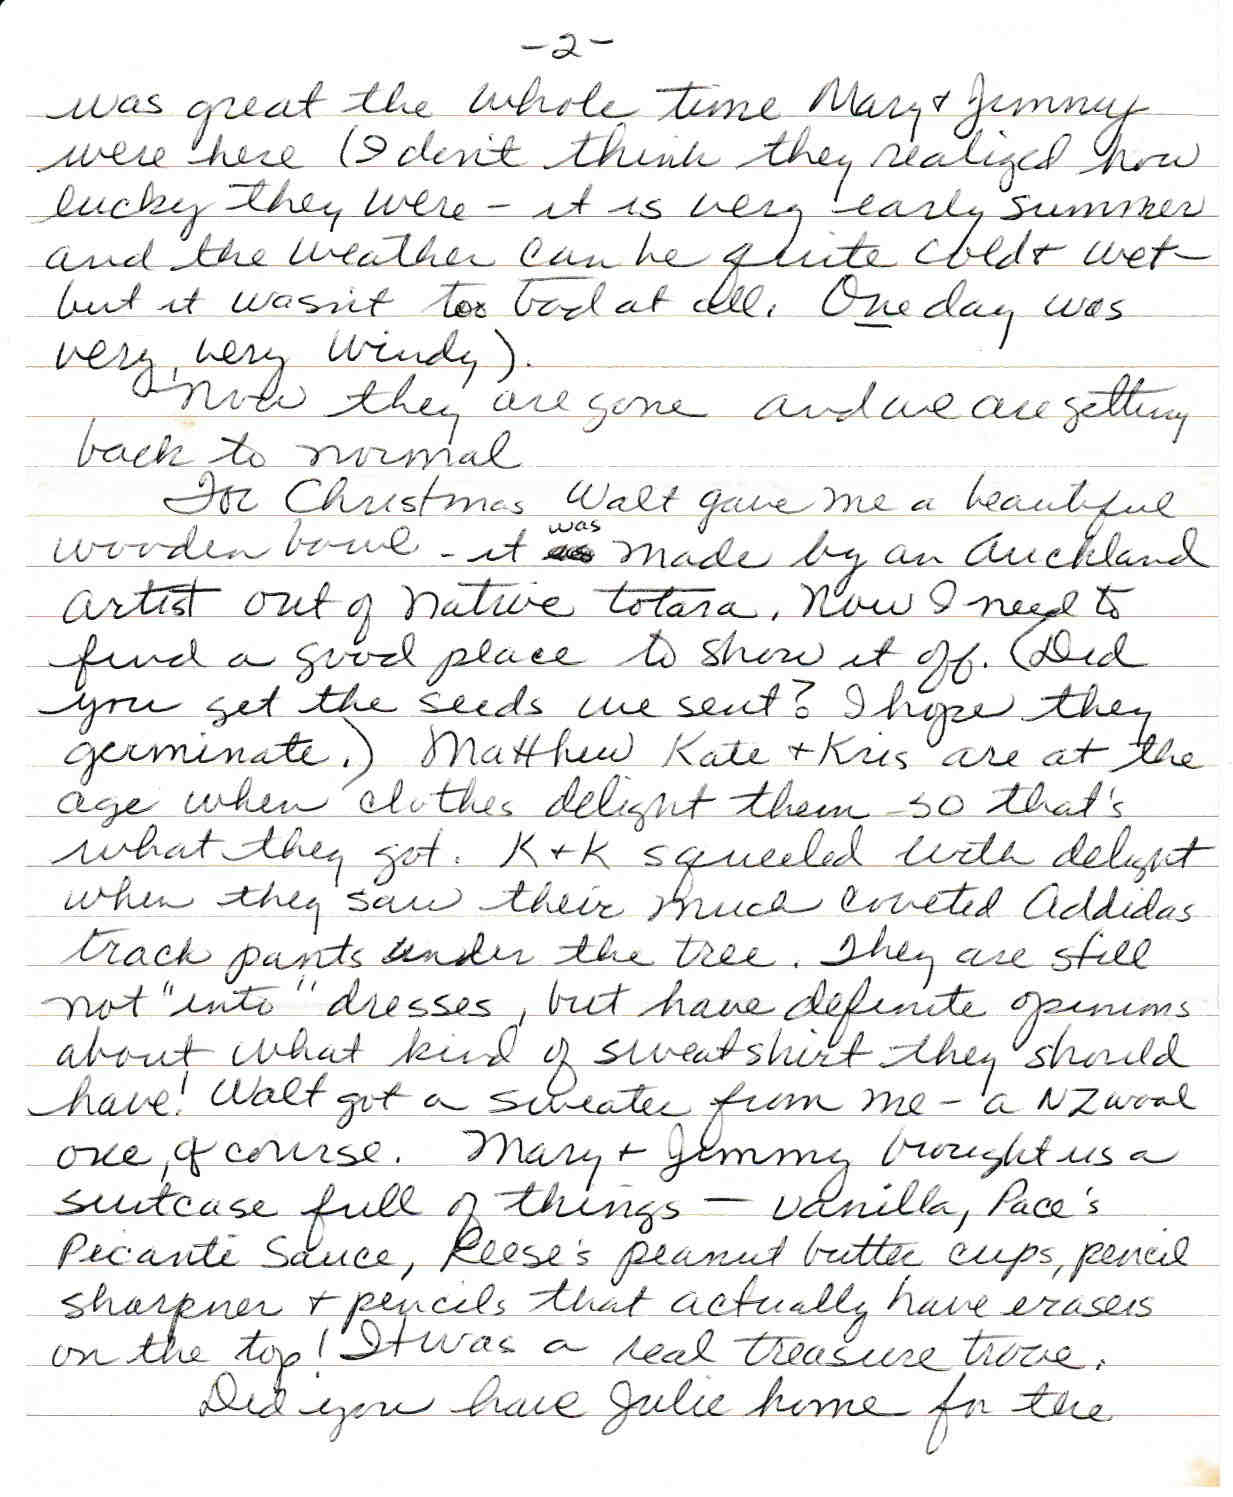 -2-
was great the whole time Mary + Jimmy
were here (I don't think they realized how
lucky they were - it is very early summer
and the weather can be quite cold + wet -
but it wasn't too bad at all. One day was
very, very windy).
Now they are gone and we are getting
back to normal
For Christmas Walt gave me a beautiful
wooden bowl - it was made by an Auckland
artist out of native totara. Now I need to
find a good place to show it off. (Did
you get the seeds we sent? I hope they
germinate.) Matthew Kate + Kris are at the
age when clothes delight them so that's
what they got. K + K squeeled with delight
when they saw their much coveted Addidas
track pants under the tree. They are still
not "into" dresses, but have definite opinions
about what kind of sweatshirt they should
have! Walt got a sweater from me - a NZ wool
one, of course. Mary + Jimmy brought us a
suitcase full of things - vanilla, Pace's
Picante Sauce, Reese's peanut butter cups, pencil
sharpner + pencils that actually have erasers
on the top! It was a real treasure trove.
Did you have Julie home for the